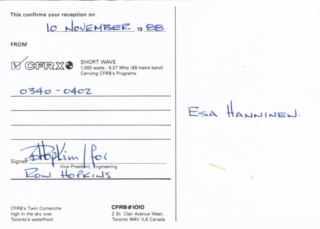 This confirms your reception on
10 NOVEMBER 19 88
FROM
CFRX
SHORT WAVE
1,000 watts - 6.07 MHz (49 metre band)
Carrying CFRB's Programs.
0340 - 0402
Signed Hopkins/for
Vice-President, Engineering
RON HOPKINS
ESA HANNINEN.
CFRB's Twin Comanche
high in the sky over
Toronto's waterfront.
CFRB 1010
2 St. Clair Avenue West,
Toronto M4V 1L6 Canada